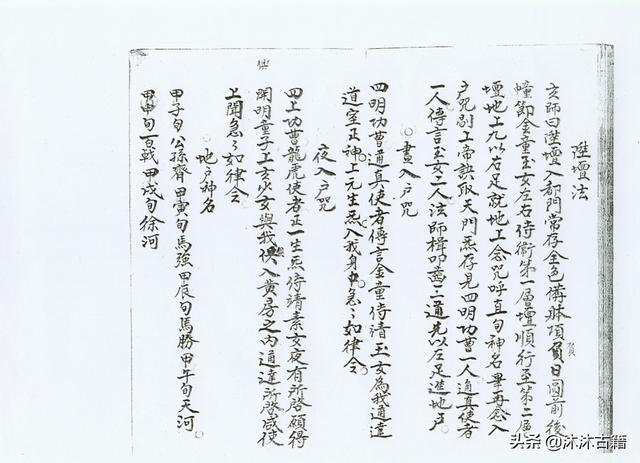 陞壇法
玄師曰陞壇入都門常存金色𬾨躰項負日圓前後
幢節金童玉女左右侍衛第一層壇順行至第二層
壇地上九以右足就地上念咒呼直旬神名畢再念入
户咒剔上帝訣取天門炁存見四明功曹一人通真使者
一人傳言玉女二人法師揖叩齒二通先以左足進地户
晝入户咒
四明功曹通真使者傳言金童侍清玉女為我通達
道室正神上元生炁入我身中急々如律令
夜入户咒
四上功曹龍虎使者正一生炁侍靖素女夜有所啓願得
開明童子上玄少女與我俱入黄房之内通達所啓咸使
上聞急々如律令
地户神名
甲子旬公孫齊甲寅旬馬強甲辰旬馬勝甲午旬天河
甲申旬百戰甲戌旬徐河
頭条 @沐沐古籍